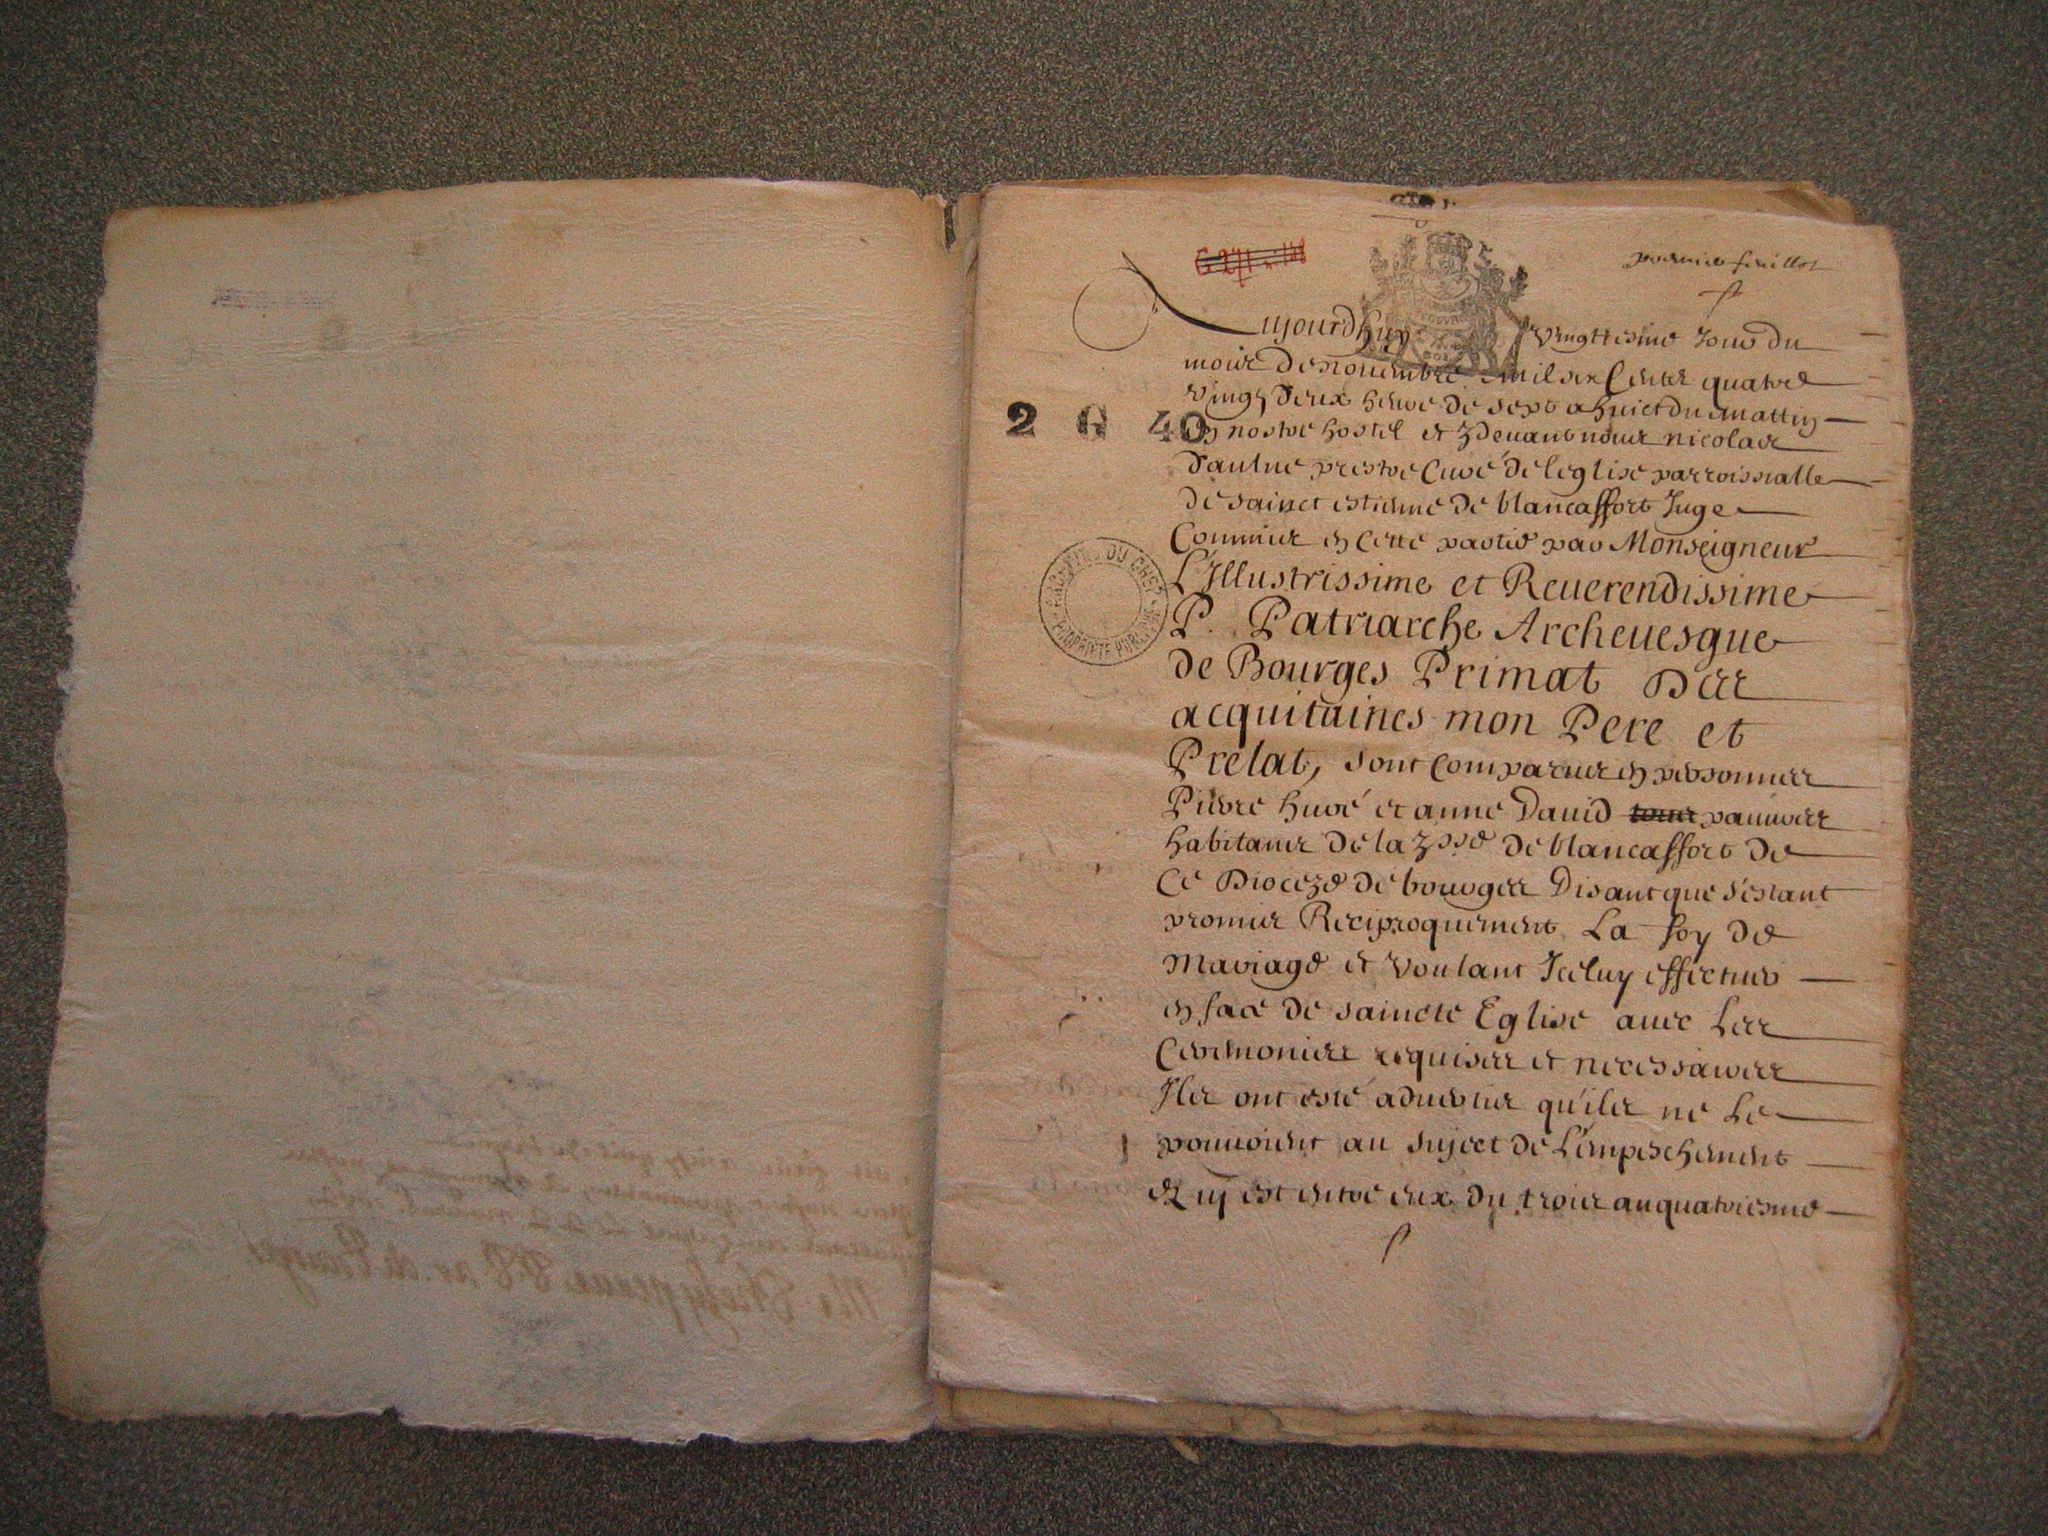 premier feuillet
Aujourdhuy vingttiesme Jour du
mois de nouembre mil six Cents quatre
vingt deux heure de sept a huict du mattin
en nostre hostel et pdeuant nous nicolas
daulne prestre Curé de leglise parroissialle
de sainct estienne de blancaffort Juge
Commis en cette partie par Monseigneur
L'Illustrissime et Reuerendissime
P. Patriarche Archeuesque
de Bourges Primat Des
acquitaines mon Pere et
Prelat, sont comparus en personnes
Pierre hué et anne Dauid pauures
habitans de la ppe de blancaffort de
Ce Dioceze de bourges Disant que s'estant
promis Reciproquement La foy de
Mariage et voulant Iceluy effectuer
en face de saincte Eglise auec Les
Ceremonies requises et necessaires
Ils ont esté aduertis qu'ils ne Le
pouuoient au sujeet de L'empeschement
qui est entre eux du trois au quatriesme
2 G 40
ARCHIVES DU CHER
PROPRIETE PUBLIQUE